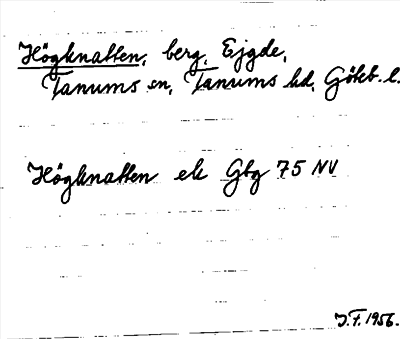 Högknatten, berg, Ejgde,
Tanums sn, Tanums hd, Göteb. l.
Högknatten ek Gbg 75 NV
J.F. 1956.